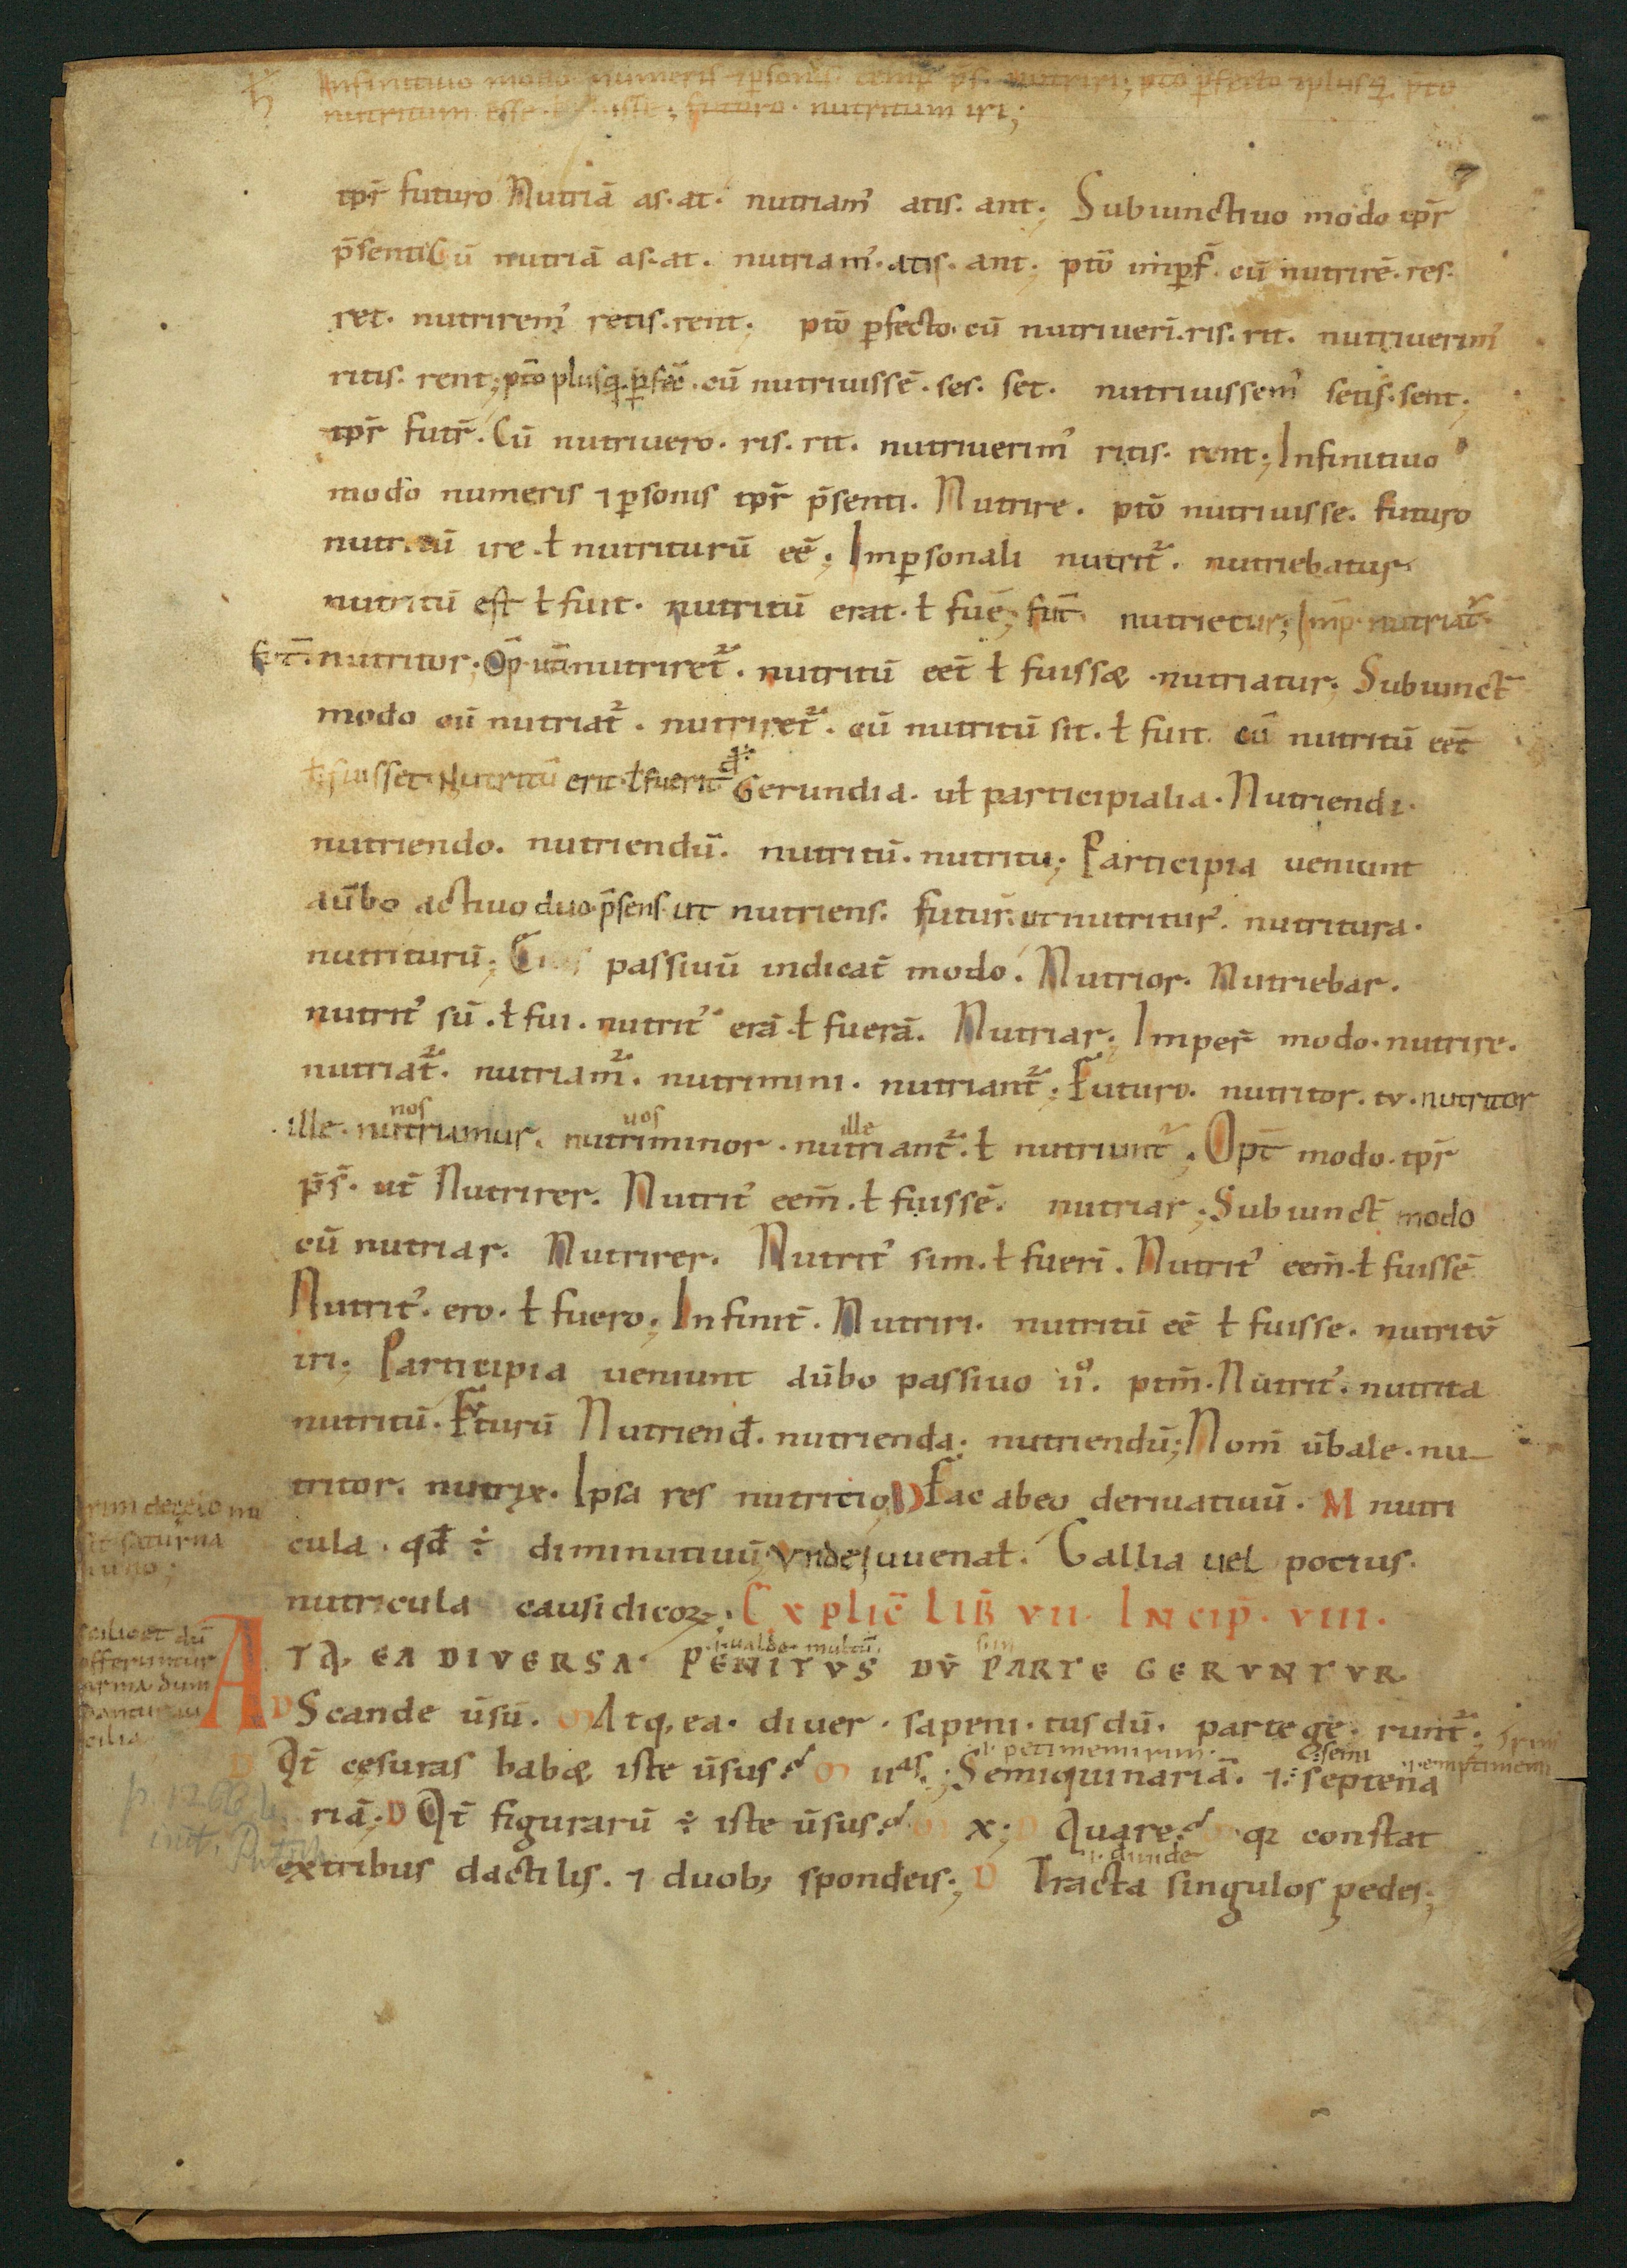 ħ Infinitiuo modo numeris ⁊ ꝑsonis temꝑ p̄s. nutriri; p̄to ꝑfecto ⁊plusq̄ p̄to
nutritum esse futuro nutritum iri;
tp̄r futuro Nutriā as. at. nutriam᷒ atis. ant; Subiunctiuo modo tp̄r
p̄senti Cū nutriā as. at. nutriam᷒. atis. ant; p̄to imꝑf. cū nutrirē. res.
ret. nutrirem᷒ retis. rent; p̄to ꝑfecto. cū nutriueri̅. ris. rit. nutriuerim᷒
ritis. rent; p̄to plusq̄ ꝑfec̄. cū nutriuissē. ses. set. nutriuissem᷒ setis. sent.
tp̄r futr̄. Cū nutriuero. ris. rit. nutriuerim᷒ ritis. rent; Infinitiuo
modo numeris ⁊ ꝑsonis tp̄r p̄senti. Nutrire. p̄to nutriuisse. futuro
nutritū ire. ł nutriturū eē; Imꝑsonali nutrit᷑. nutriebatur
nutritū est ł fuit. nutritū erat. ł fuē; fut̄ nutrietur; Imp̄. nutriat᷑.
fut̄. nutritor. Op̄ utī nutriret᷑. nutritū eet̄ ł fuissæ. nutriatur; Subiunct̄
modo cū nutriat᷑. nutriret᷑. cū nutritū sit. ł fuit cū nutritū eet̄
ł fuisset. Nutritū erit. ł fuerit Gerundia. uł participialia. Nutriendi.
nutriendo. nutriendū. nutritū. nutritu; Participia ueniunt
aūbo actiuo duo p̄sens ut nutriens. futur̄. ut nutritur᷒. nutritura.
nutriturū; passiuū indicat̄ modo. Nutrior. Nutriebar.
nutrit᷒ sū. ł fui. nutrit᷒ erā. ł fuerā. Nutriar; Imper̄ modo. nutrire.
nutriat᷑. nutriam᷑. nutrimini. nutriant᷑; Futuro. nutritor. tu. nutritor
nos uos ille
ille. nutriamur. nutriminor. nutriant᷑. ł nutriunt᷑; Opt̄ modo. tp̄r
p̄s̄. ut̄ Nutrirer. Nutrit᷒ eem̄. ł fuissē. nutriar; Subiunct̄ modo
cū nutriar. Nutrirer. Nutrit᷒ sim. ł fueri̅. Nutrit᷒ eem̄. ł fuissē
Nutrit᷒. ero. ł fuero; Infinit̄. Nutriri. nutritū eē ł fuisse. nutritū
iri; Participia ueniunt aūbo passiuo iiº. ptm̄. Nutrit᷒. nutrita
nutritū. Futurū Nutriend᷒. nutrienda; nutriendū; Nom̄ ūbale. nu-
tritor. nutrix. Ipsa res nutritio; D Fac abeo deriuatiuū. M nutri
cula. qd̄ ÷ diminutiuū; Unde Iuuenał. Gallia uel pocius.
nutricula causidicoꝝ; Explic̄ lib̄ VII. Incip̄. VIII.
.i. ualde. multū
ATQ, EA DIVERSA PENITVS DV̄ PARTE GERVNTVR
D Scande ūsū. M Atq, ea. diuer. sapeni. tus dū. partege. runt᷑.
.i. petimemirim. semi
D Qt̄ cesuras habæ iste ūsus? M iiᵃˢ.; Semiquinariā. ⁊ septena
riā; D Qt̄ figurarū ÷ iste ūsus? M x; D Quare? M qꝛ constat
.i. diuide
extribus dactilis. ⁊ duob; spondeis; D Tracta singulos pedes;
scilicet dū
offeruntur
arma dum
p. 1266
init. Putsch